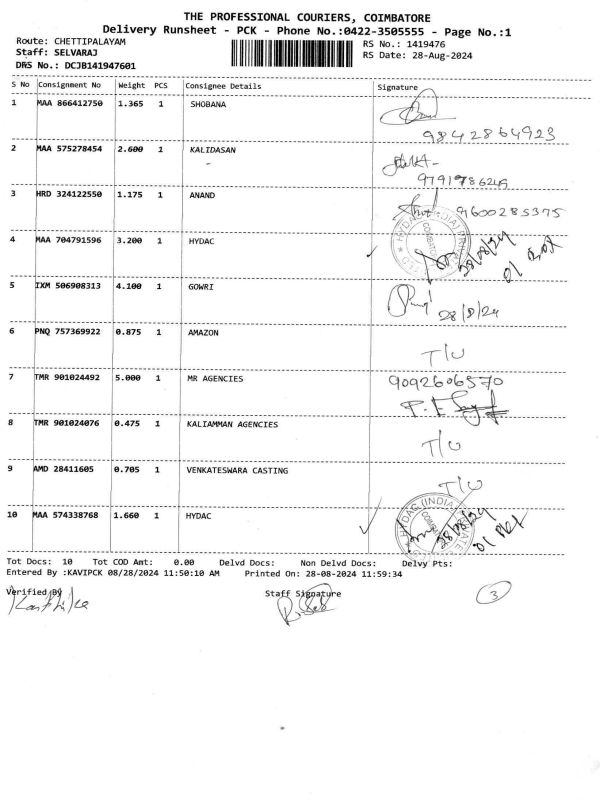 THE PROFESSIONAL COURIERS, COIMBATORE
Delivery Runsheet - PCK - Phone No.:0422-3505555 - Page No.:1
Route: CHETTIPALAYAM RS No.: 1419476
Staff: SELVARAJ RS Date: 28-Aug-2024
DRS No.: DCJB141947601
S No Consignment No Weight PCS Consignee Details Signature
1 MAA 866412750 1.365 1 SHOBANA
9842864923
2 MAA 575278454 2.600 1 KALIDASAN
-
9791786249
3 HRD 324122550 1.175 1 ANAND 9600285375
4 MAA 704791596 3.200 1 HYDAC HYDAC (INDIA) COIMBATORE 28/08/24
5 IXM 506908313 4.100 1 GOWRI
28/8/24
6 PNQ 757369922 0.875 1 AMAZON
T/U
7 TMR 901024492 5.000 1 MR AGENCIES 9092606570
8 TMR 901024076 0.475 1 KALIAMMAN AGENCIES
T/U
9 AMD 28411605 0.705 1 VENKATESWARA CASTING
T/U
10 MAA 574338768 1.660 1 HYDAC HYDAC (INDIA) 28/08/24
Tot Docs: 10 Tot COD Amt: 0.00 Delvd Docs: Non Delvd Docs: Delvy Pts:
Entered By :KAVIPCK 08/28/2024 11:50:10 AM Printed On: 28-08-2024 11:59:34
Verified By Staff Signature 3